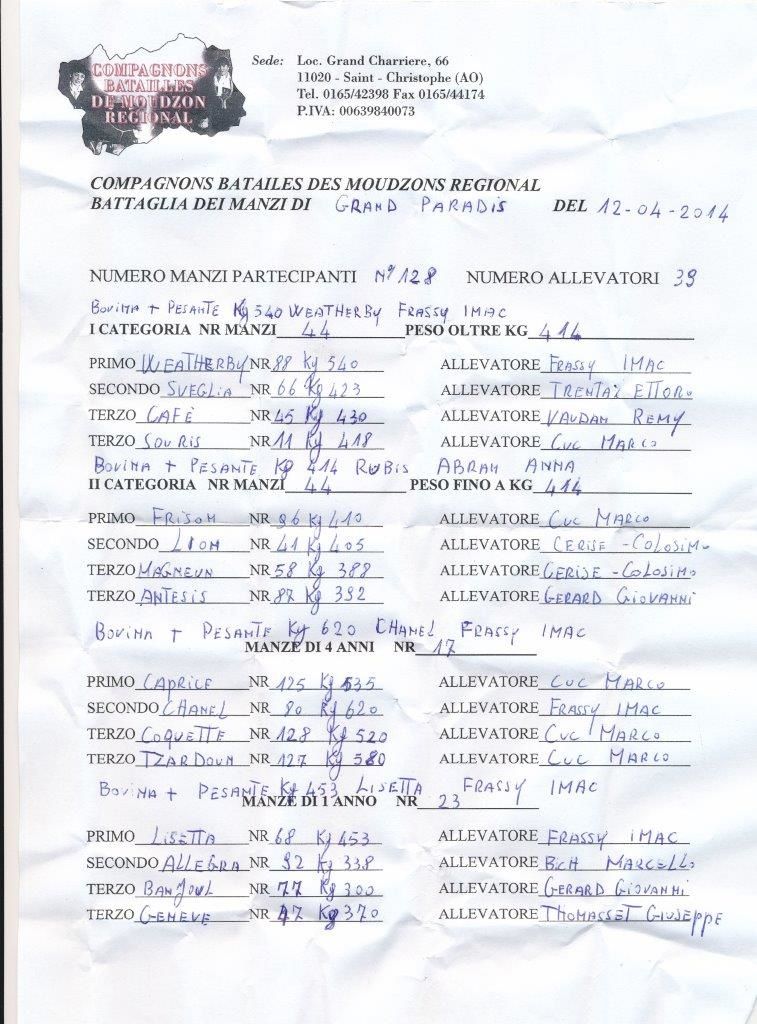 COMPAGNONS
BATAILLES
DE MOUDZON
REGIONAL
Sede: Loc. Grand Charriere, 66
11020 - Saint - Christophe (AO)
Tel. 0165/42398 Fax 0165/44174
P.IVA: 00639840073
COMPAGNONS BATAILES DES MOUDZONS REGIONAL
BATTAGLIA DEI MANZI DI GRAND PARADIS DEL 12-04-2014
NUMERO MANZI PARTECIPANTI N° 128 NUMERO ALLEVATORI 39
BOVINA + PESANTE Kg 540 WEATHERBY FRASSY IMAC
I CATEGORIA NR MANZI 44 PESO OLTRE KG 414
PRIMO WEATHERBY NR 88 Kg 540 ALLEVATORE FRASSY IMAC
SECONDO SVEGLIA NR 66 Kg 423 ALLEVATORE TRENTAZ ETTORE
TERZO CAFÈ NR 45 Kg 430 ALLEVATORE VAUDAN REMY
TERZO SOURIS NR 11 Kg 418 ALLEVATORE CUC MARCO
BOVINA + PESANTE Kg 414 RUBIS ABRAM ANNA
II CATEGORIA NR MANZI 44 PESO FINO A KG 414
PRIMO FRISON NR 96 Kg 410 ALLEVATORE CUC MARCO
SECONDO LION NR 41 Kg 405 ALLEVATORE CERISE - COLOSIMO
TERZO MAGNEUN NR 58 Kg 388 ALLEVATORE CERISE - COLOSIMO
TERZO ANTESIS NR 87 Kg 392 ALLEVATORE GERARD GIOVANNI
BOVINA + PESANTE Kg 620 CHANEL FRASSY IMAC
MANZE DI 4 ANNI NR 17
PRIMO CAPRICE NR 125 Kg 535 ALLEVATORE CUC MARCO
SECONDO CHANEL NR 80 Kg 620 ALLEVATORE FRASSY IMAC
TERZO COQUETTE NR 128 Kg 520 ALLEVATORE CUC MARCO
TERZO TZARDOUN NR 127 Kg 580 ALLEVATORE CUC MARCO
BOVINA + PESANTE Kg 453 LISETTA FRASSY IMAC
MANZE DI 1 ANNO NR 23
PRIMO LISETTA NR 68 Kg 453 ALLEVATORE FRASSY IMAC
SECONDO ALLEGRA NR 92 Kg 338 ALLEVATORE BICH MARCELLO
TERZO BANJOUL NR 77 Kg 300 ALLEVATORE GERARD GIOVANNI
TERZO GENEVE NR 47 Kg 370 ALLEVATORE THOMASSET GIUSEPPE